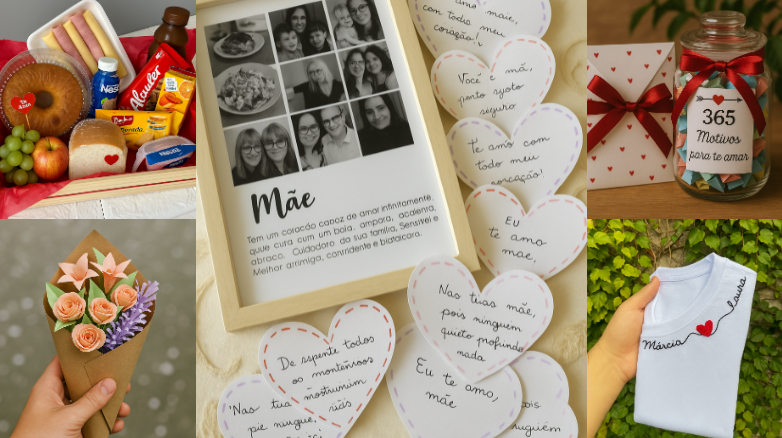 Te Amo
Nes
Bauducco
Mãe
Tem um coração capaz de amar infinitamente,
que cura com um bola, ampora, acalenta,
abraco. Cuidadora da sua família, Sensível e
Melhor arrimiga, convridente e biataicora.
amo mae,
com todo meu
coração!
Você e mã,
porto sjoto
seguro
te amo com
todo meu
corcação!
EU
te amo
mae,
Nas tuas mãe,
pois ninguem
quieto profundo
nada
De repente todos
os montenroos
mostrunim
riás
Eu te amo,
mãe
'Nas tua
pie ningue,
pois
uguém
365
Motivos
para te amar
Márcia
laura